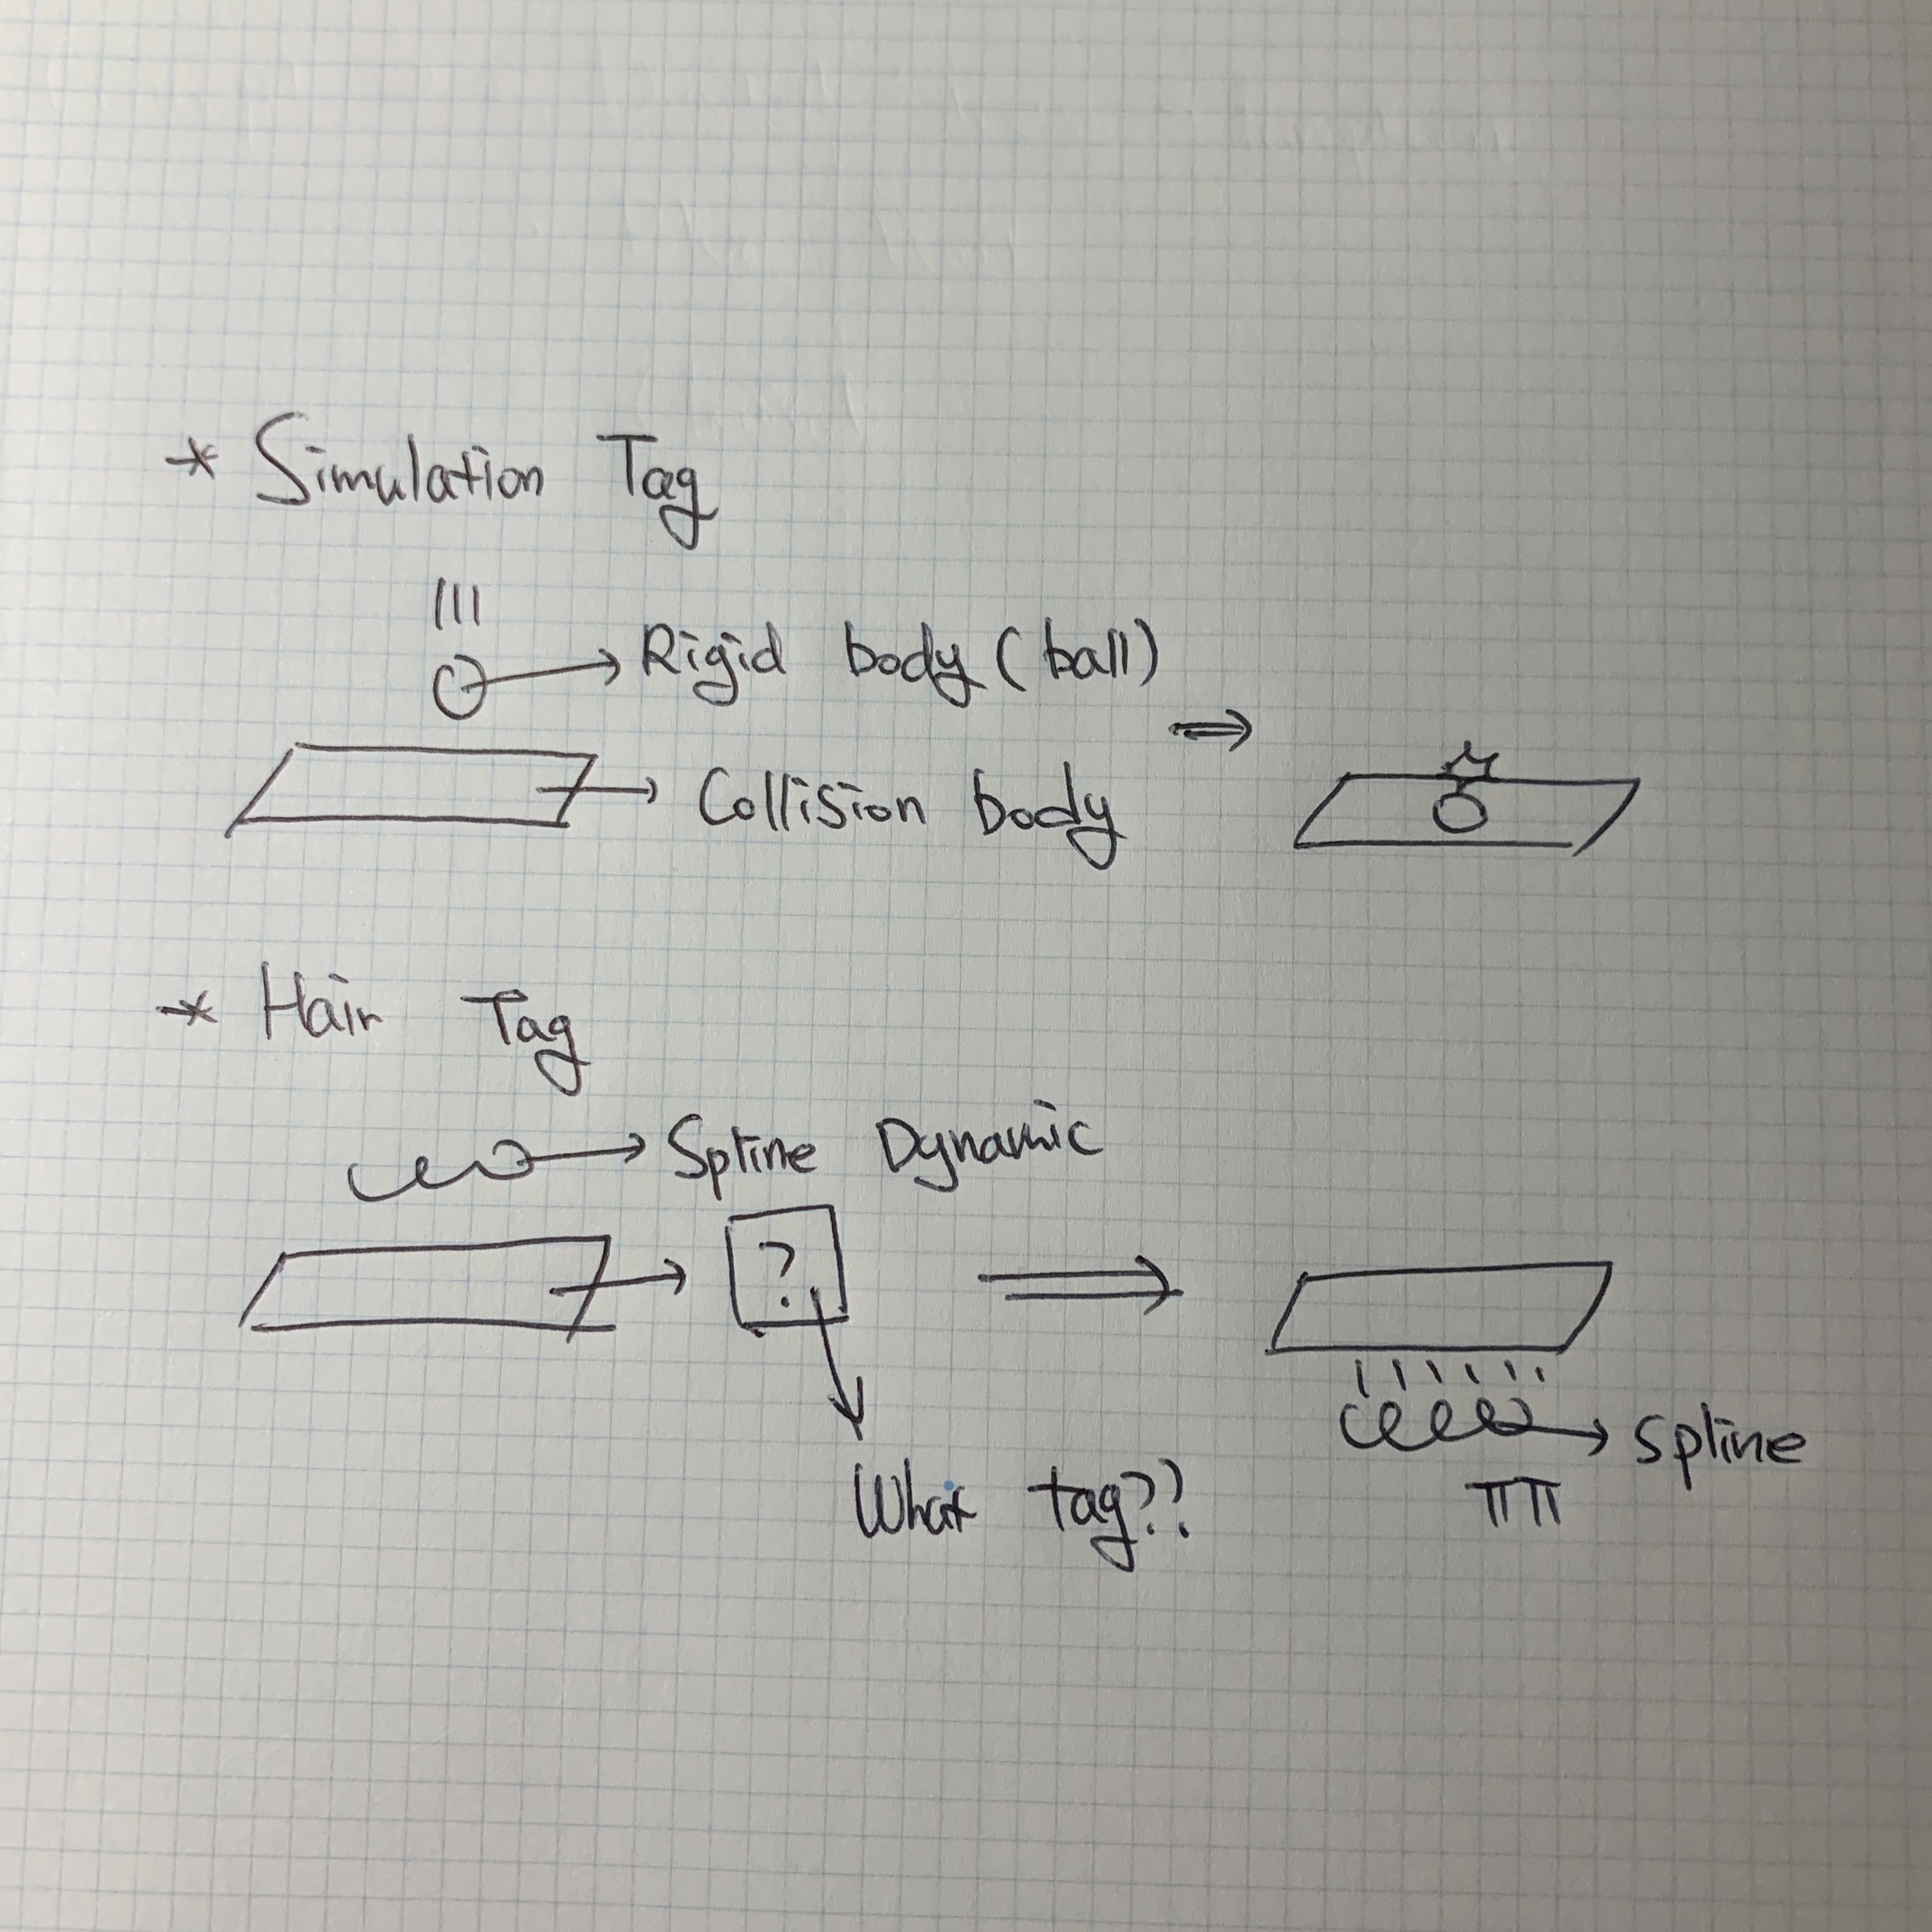 * Simulation Tag
Rigid body (ball)
Collision body
* Hair Tag
Spline Dynamic
?
Spline
What tag??